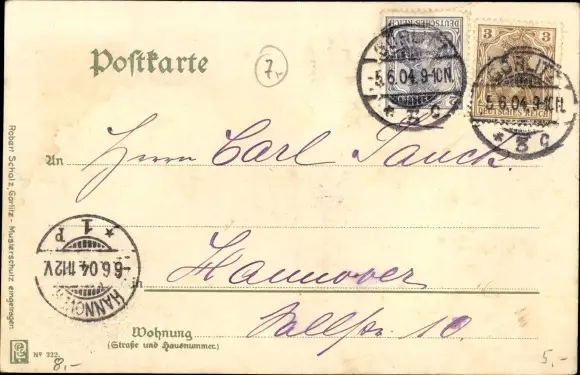 Postkarte
7,-
DEUTSCHES REICH
2
GÖRLITZ
-5.6.04.9-10.N.
* 3 c
3
3
DEUTSCHES REICH
GÖRLITZ
5.6.04.9-10.N.
* 3 c
An Herrn Carl Tauch.
* 1 P
-6.6.04.11-12V.
HANNOVER
Hannover
in
Sallstr. 10.
Wohnung
(Straße und Hausnummer.)
Robert Scholz, Görlitz - Musterschutz eingetragen
No 322.
8,-
5,-